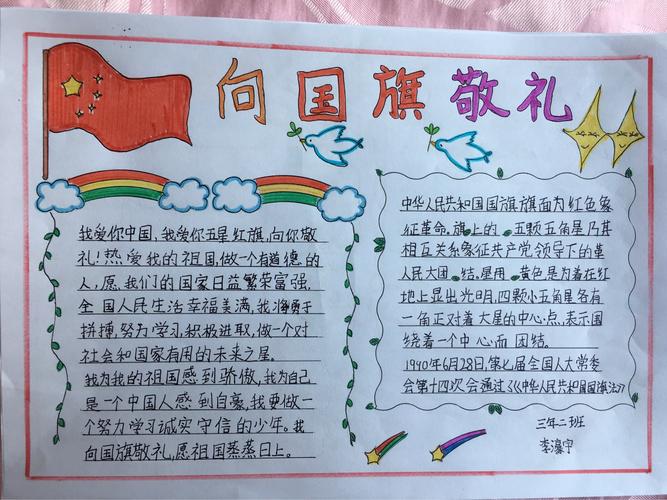 向国旗敬礼
我爱你中国,我爱你五星红旗,向你敬
礼!热爱我的祖国,做一个有道德的
人,愿我们的国家日益繁荣富强,
全国人民生活幸福美满,我将勇于
拼搏,努力学习,积极进取,做一个对
社会和国家有用的未来之星。
我为我的祖国感到骄傲,我为自己
是一个中国人感到自豪,我要做一
个努力学习诚实守信的少年。我
向国旗敬礼,愿祖国蒸蒸日上。
中华人民共和国国旗旗面为红色象
征革命,旗上的五颗五角星乃其
相互关系象征共产党领导下的革
人民大团结,星用黄色是为着在红
地上显出光明,四颗小五角星各有
一角正对着大星的中心点,表示围
绕着一个中心而团结。
1940年6月28日,第七届全国人大常委
会第十四次会通过《《中华人民共和国国旗法》》
三年二班
李 宁